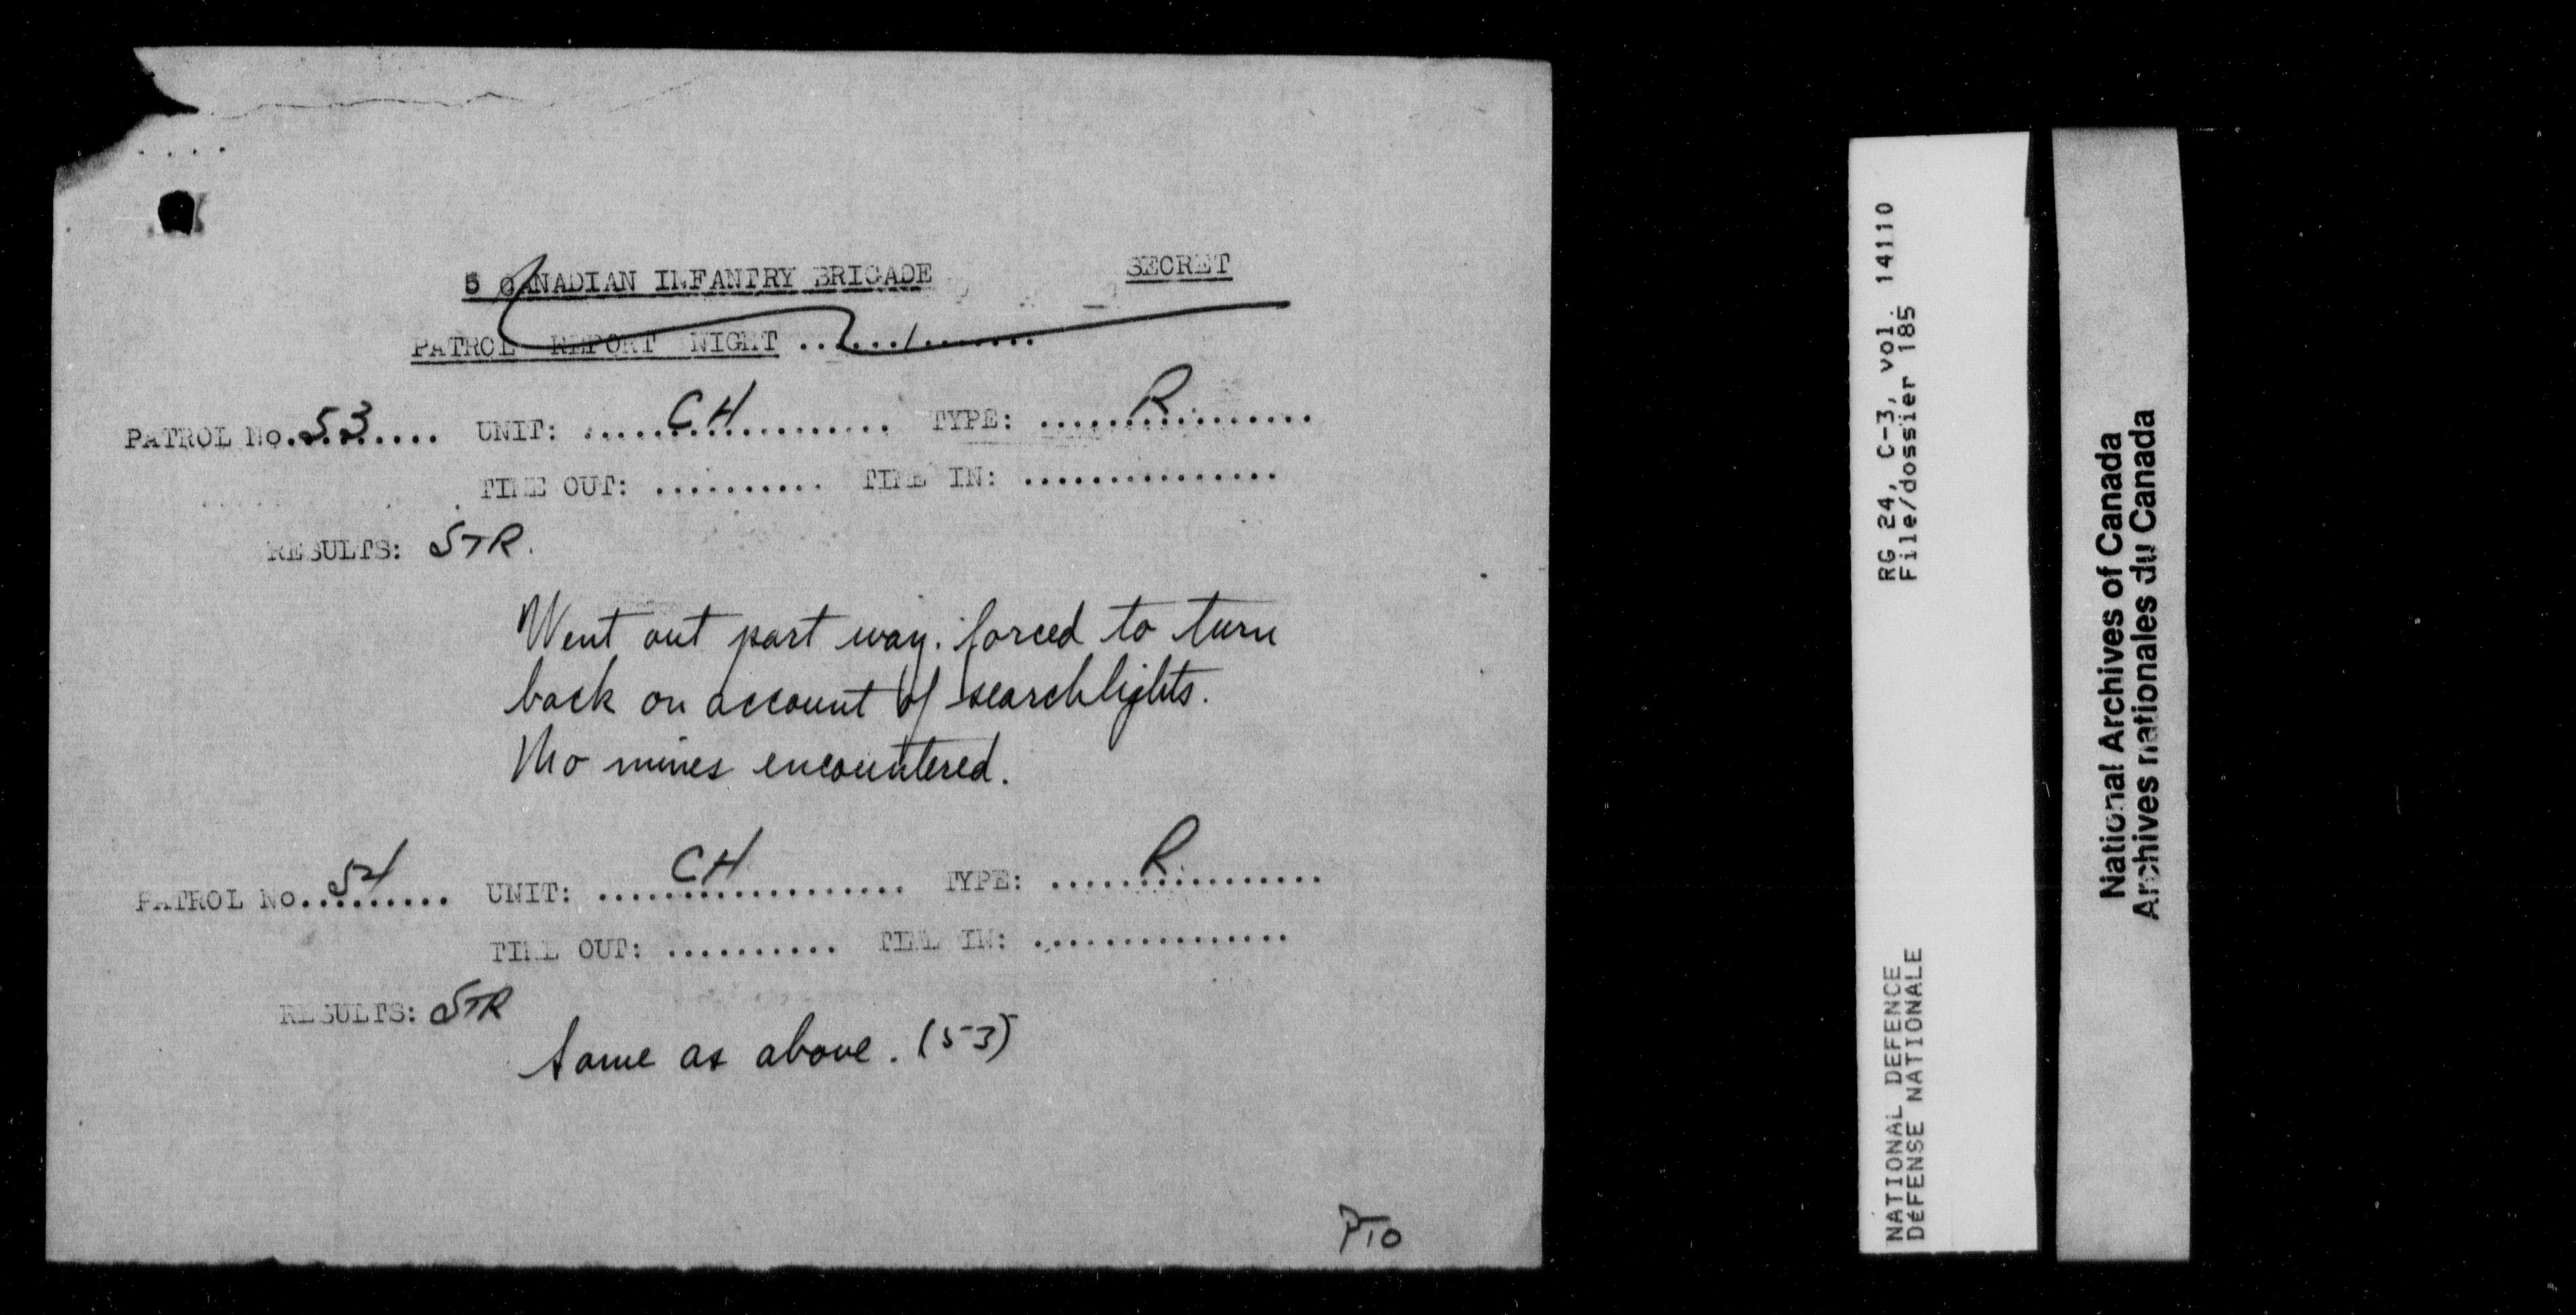 5 CANADIAN INFANTRY BRIGADE SECRET
PATROL REPORT NIGHT ..............
PATROL No. 53 UNIT: CH TYPE: R
TIME OUT: .......... TIME IN: ...............
RESULTS: STR.
Went out part way. forced to turn
back on account of searchlights.
No mines encountered.
PATROL No. 54 UNIT: CH TYPE: R
TIME OUT: .......... TIME IN: ...............
RESULTS: STR
Same as above. (53)
PTO
RG 24, C-3, vol. 14110
File/dossier 185
NATIONAL DEFENCE
DÉFENSE NATIONALE
National Archives of Canada
Archives nationales du Canada